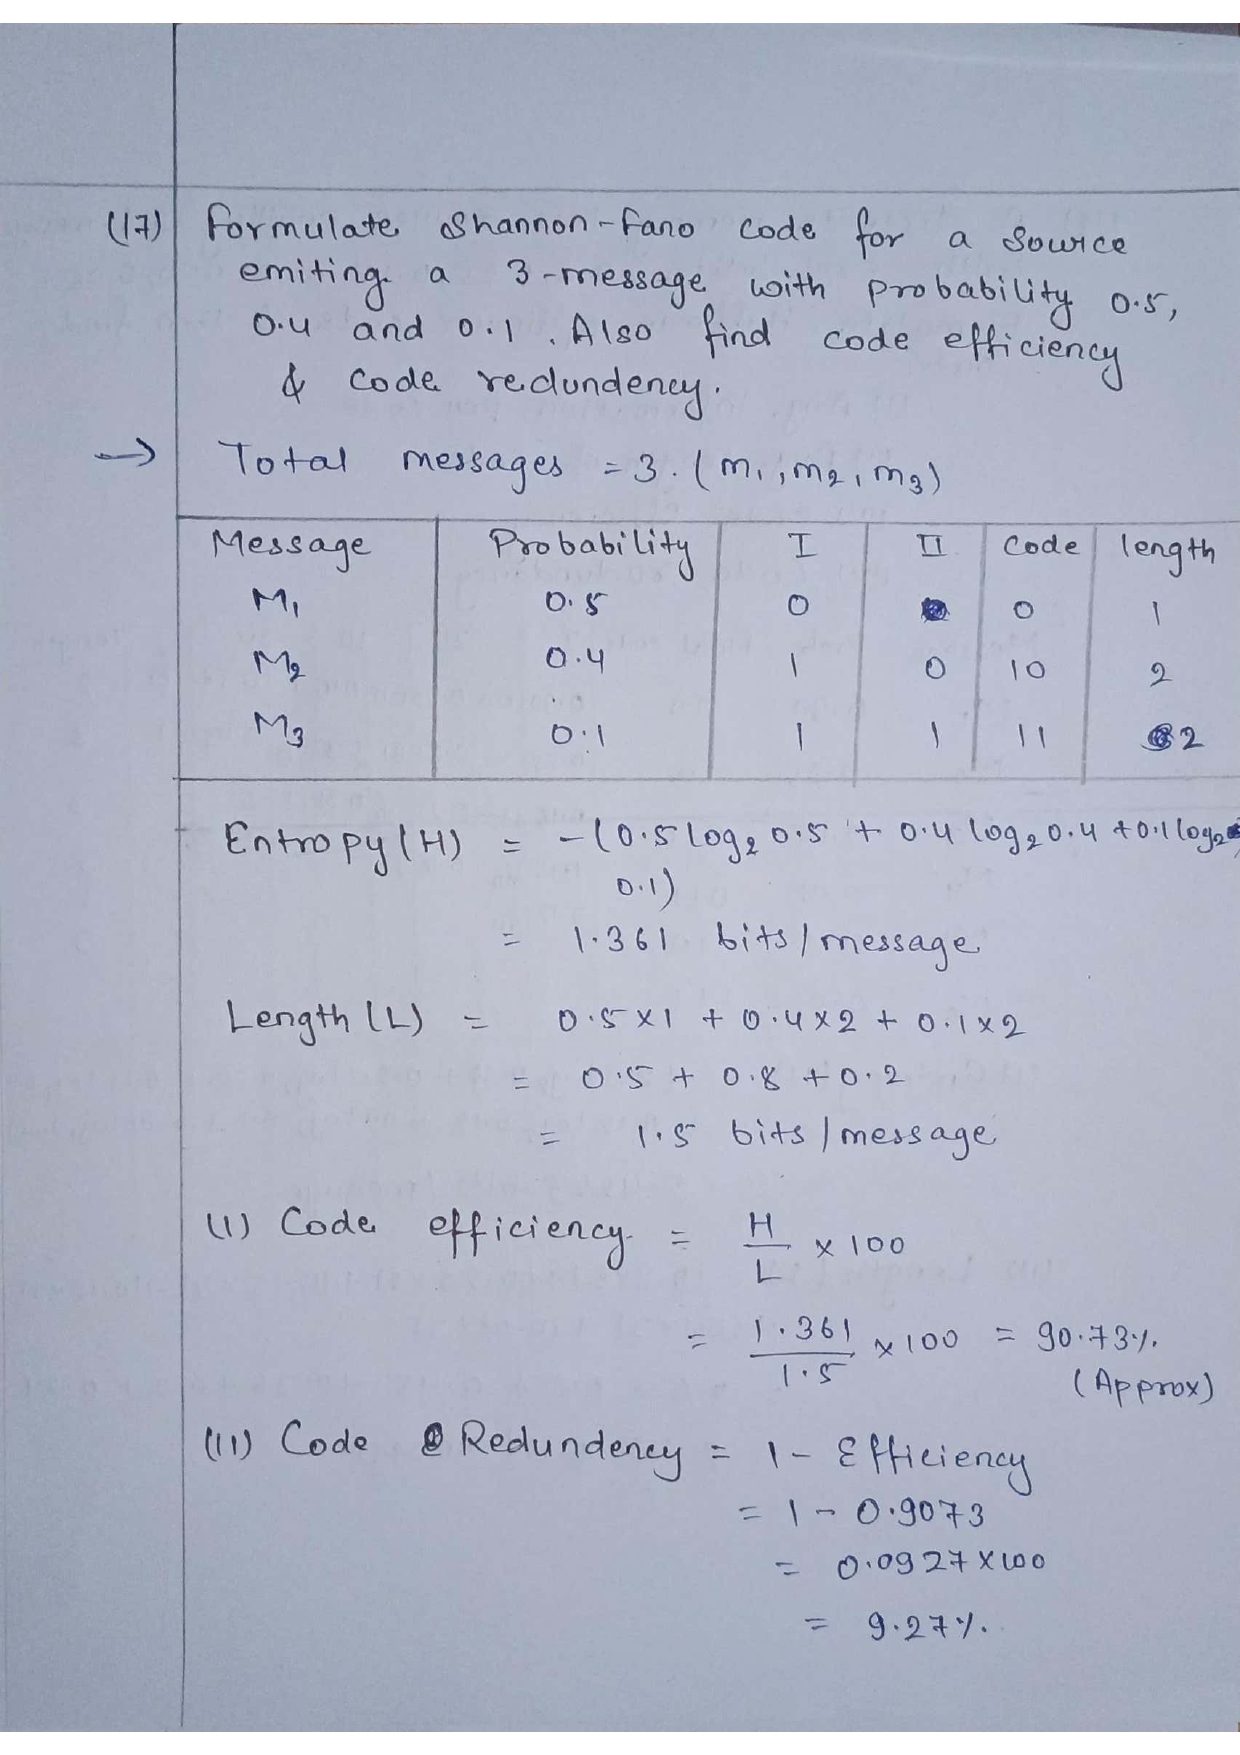 (17) Formulate Shannon-Fano code for a source
emiting a 3-message with probability 0.5,
0.4 and 0.1. Also find code efficiency
& code redundency.
→ Total messages = 3. (m1, m2, m3)
Message Probability I II Code length
M1 0.5 0 0 1
M2 0.4 1 0 10 2
M3 0.1 1 1 11 2
Entropy (H) = -(0.5 log2 0.5 + 0.4 log2 0.4 + 0.1 log2
0.1)
= 1.361 bits/message
Length (L) = 0.5 x 1 + 0.4 x 2 + 0.1 x 2
= 0.5 + 0.8 + 0.2
= 1.5 bits/message
(I) Code efficiency = H/L x 100
= 1.361/1.5 x 100 = 90.73%
(Approx)
(II) Code Redundency = 1 - Efficiency
= 1 - 0.9073
= 0.0927 x 100
= 9.27%.